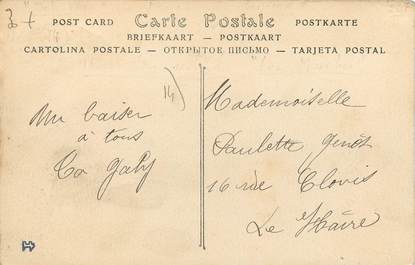 POST CARD Carte Postale POSTKARTE
BRIEFKAART — POSTKAART
CARTOLINA POSTALE — ОТКРЫТОЕ ПИСЬМО — TARJETA POSTAL
14
Un baiser
à tous
Ta Gaby
Mademoiselle
Paulette Genêt
16 rue Clovis
Le Hâvre